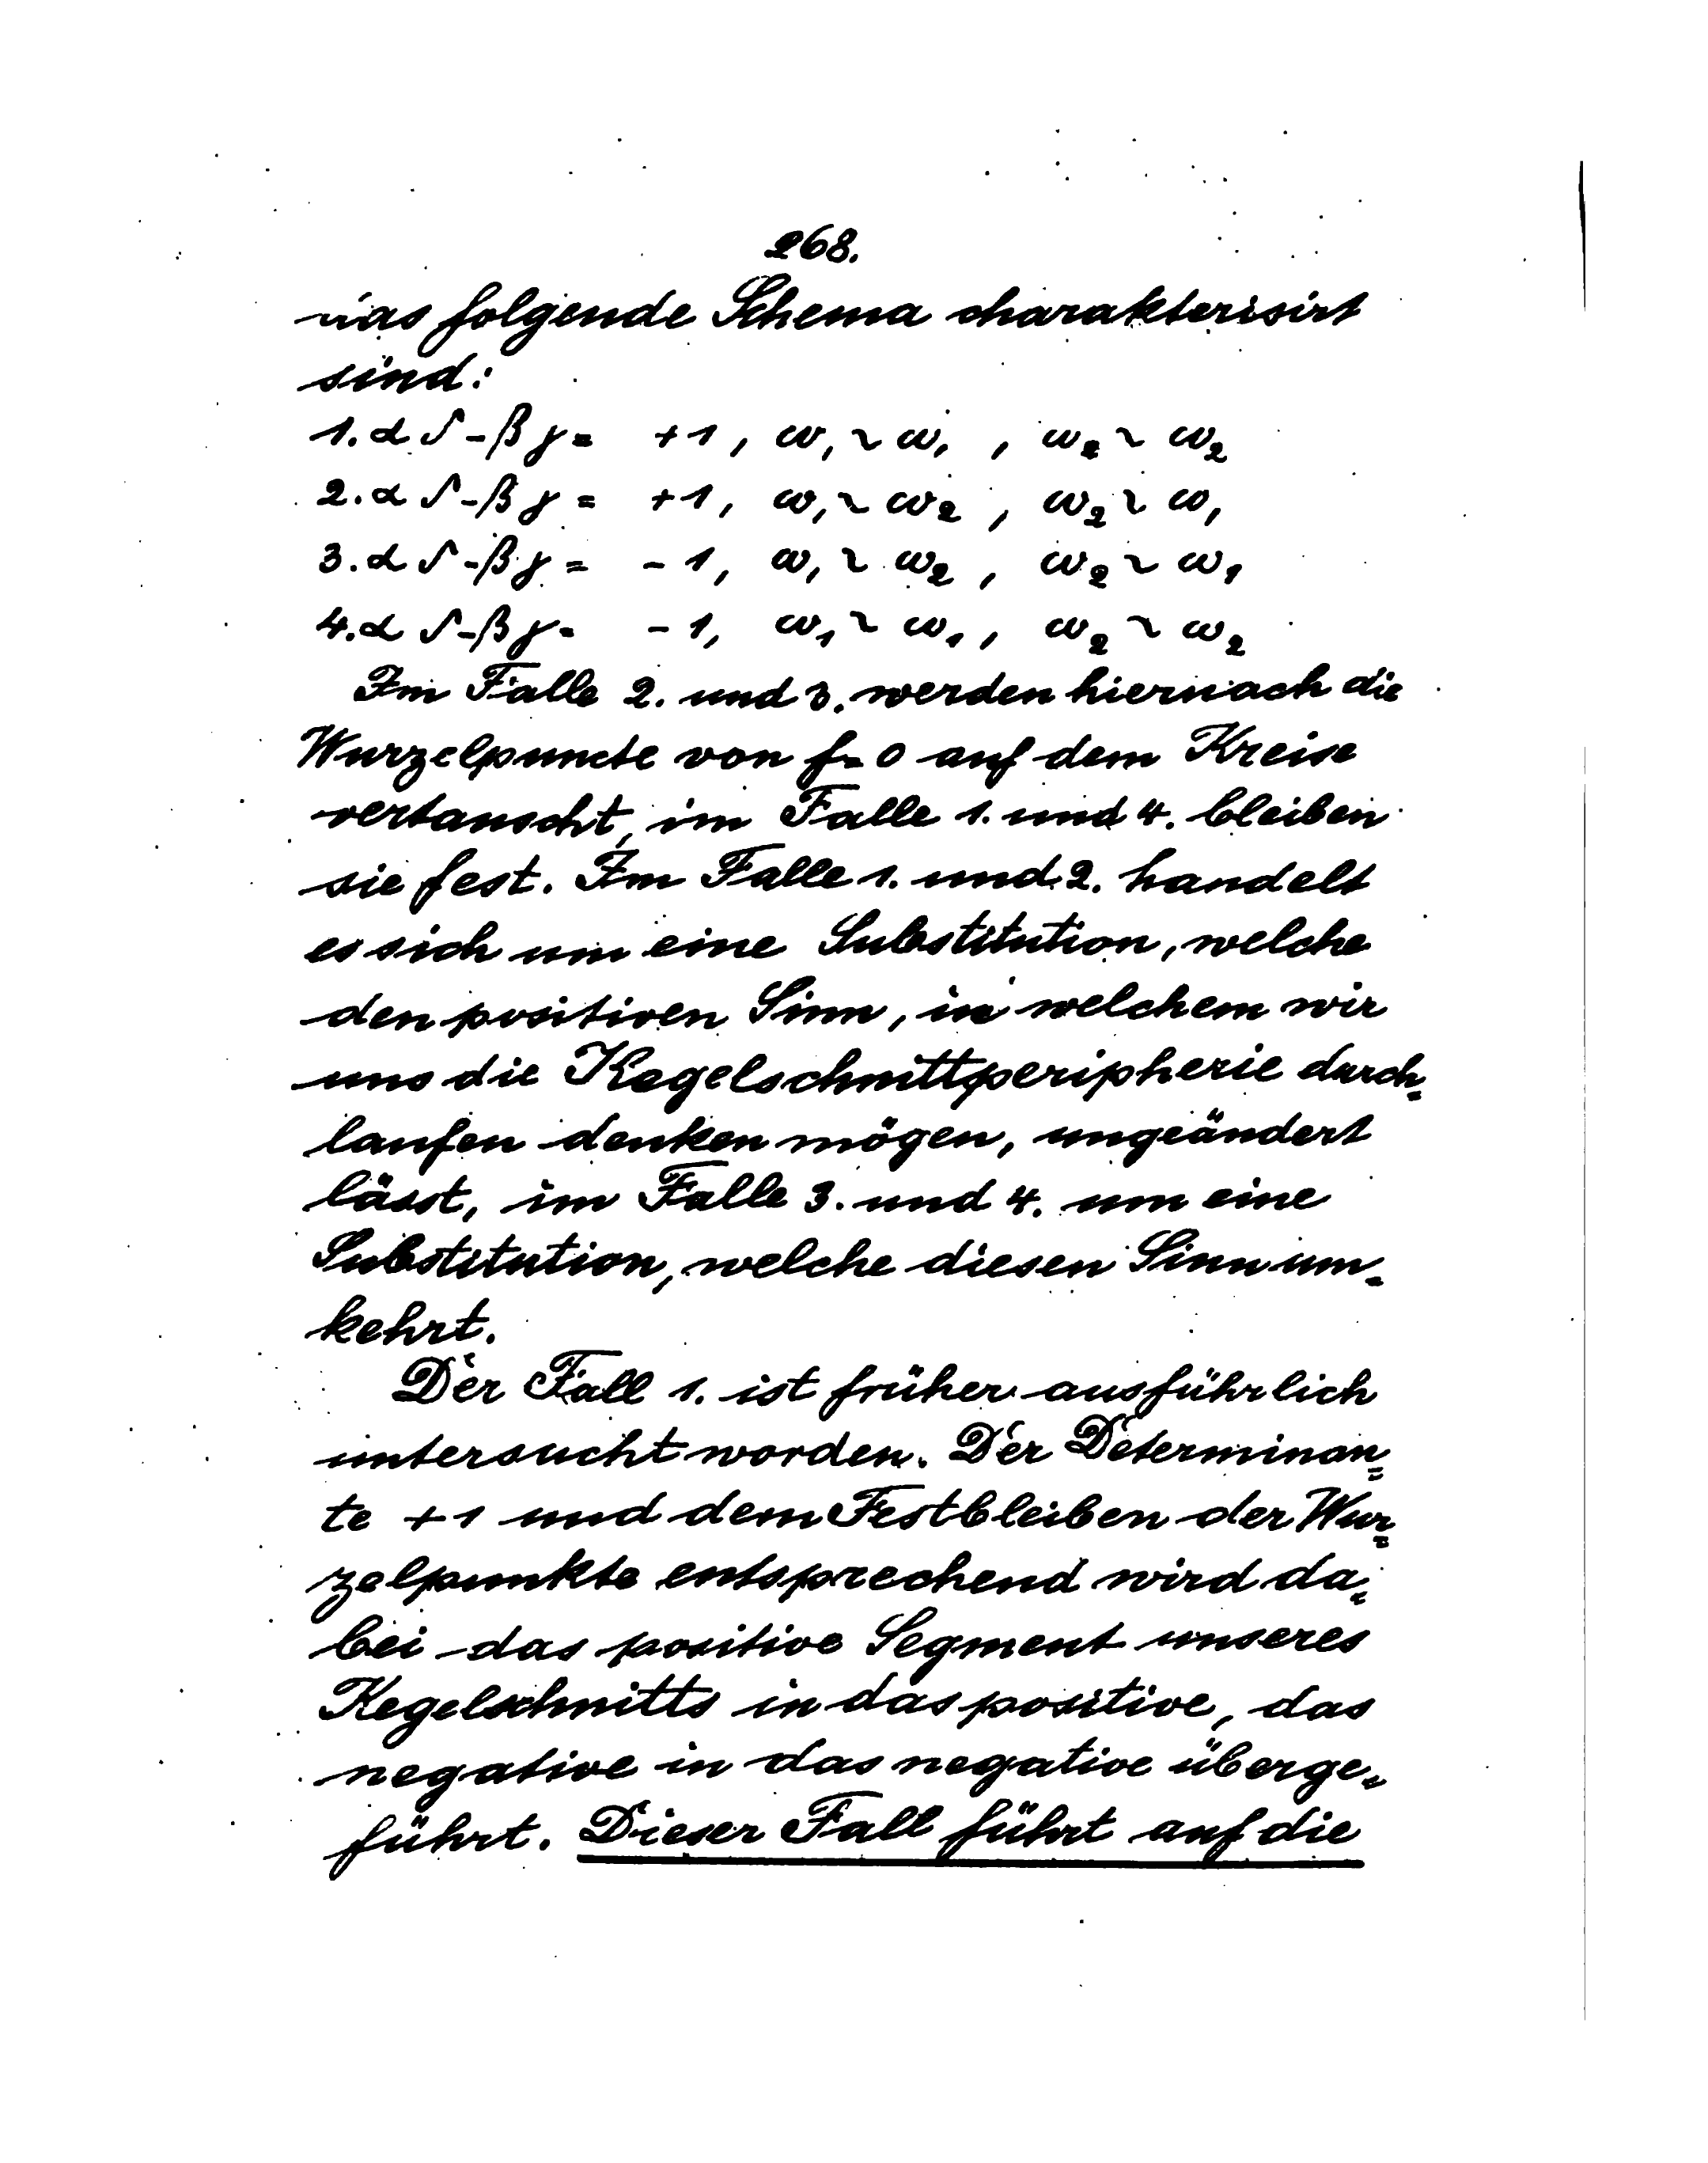 268.
das folgende Schema charakterisirt
sind:
1. αδ-βγ= +1, ω₁ ~ ω₁, ω₂ ~ ω₂
2. αδ-βγ= +1, ω₁ ~ ω₂, ω₂ ~ ω₁
3. αδ-βγ= -1, ω₁ ~ ω₂, ω₂ ~ ω₁
4. αδ-βγ= -1, ω₁ ~ ω₁, ω₂ ~ ω₂
Im Falle 2. und 3. werden hiernach die
Wurzelpuncte von f=0 auf dem Kreise
vertauscht, im Falle 1. und 4. bleiben
sie fest. Im Falle 1. und 2. handelt
es sich um eine Substitution, welche
den positiven Sinn, in welchem wir
uns die Kegelschnittperipherie durch-
laufen denken mögen, ungeändert
lässt, im Falle 3. und 4. um eine
Substitution, welche diesen Sinn um-
kehrt.
Der Fall 1. ist früher ausführlich
untersucht worden. Der Determinan=
te +1 und dem Festbleiben der Wur=
zelpunkte entsprechend wird da-
bei das positive Segment unseres
Kegelschnitts in das positive, das
negative in das negative überge-
führt. Dieser Fall führt auf die